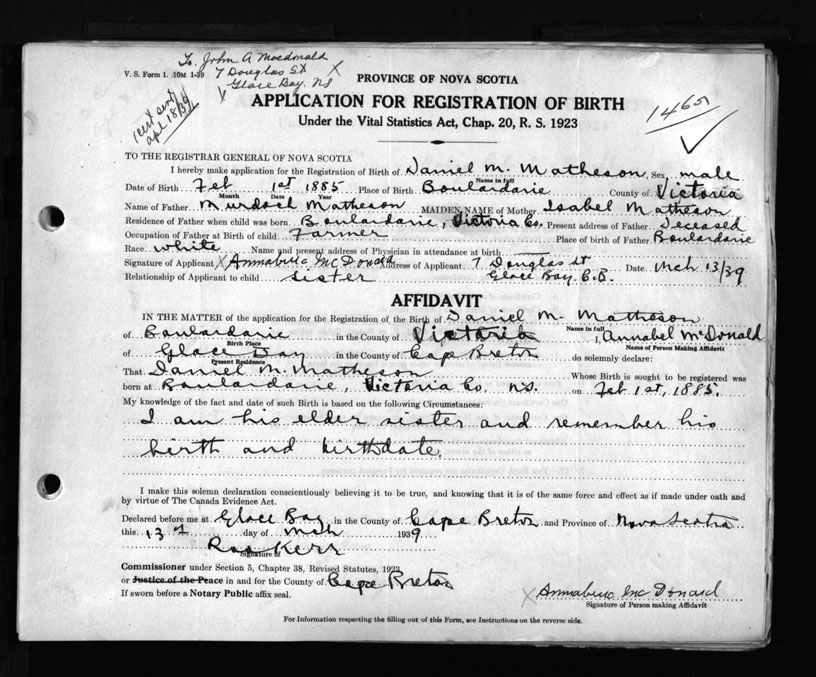 To. John A Macdonald
V. S. Form 1. 10M 1-39 7 Douglas St X
PROVINCE OF NOVA SCOTIA
X Glace Bay, NS
APPLICATION FOR REGISTRATION OF BIRTH
1465
Under the Vital Statistics Act, Chap. 20, R. S. 1923
cert sent
apl 18/39
TO THE REGISTRAR GENERAL OF NOVA SCOTIA
I hereby make application for Registration of Birth of Daniel M. Matheson, Sex male
Name in full
Date of Birth Feb 1st 1885 Place of Birth Boulardarie County of Victoria
Month Date Year
Name of Father Murdoch Matheson MAIDEN NAME of Mother Isabel Matheson
Residence of Father when child was born Boulardarie, Victoria Co. Present address of Father Deceased
Occupation of Father at Birth of child Farmer Place of birth of Father Boulardarie
Race white Name and present address of Physician in attendance at birth
Signature of Applicant X Annabelle McDonald Address of Applicant 7 Douglas St Date Mch 13/39
Relationship of Applicant to child sister Glace Bay C.B.
AFFIDAVIT
IN THE MATTER of the application for the Registration of the Birth of Daniel M. Matheson
Name in full
of Boulardarie in the County of Victoria I, Annabel McDonald
Birth Place Name of Person Making Affidavit
of Glace Bay in the County of Cape Breton do solemnly declare:
Present Residence
That Daniel M. Matheson Whose Birth is sought to be registered was
born at Boulardarie, Victoria Co. N.S. on Feb 1st, 1885.
My knowledge of the fact and date of such Birth is based on the following Circumstances:
I am his elder sister and remember his
birth and birthdate.
I make this solemn declaration conscientiously believing it to be true, and knowing that it is of the same force and effect as if made under oath and
by virtue of The Canada Evidence Act.
Declared before me at Glace Bay in the County of Cape Breton and Province of Nova Scotia
this 13th day of Mch 1939
Kerr
Signature of
Commissioner under Section 5, Chapter 38, Revised Statutes, 1923
or Justice of the Peace in and for the County of Cape Breton
If sworn before a Notary Public affix seal.
X Annabelle McDonald
Signature of Person making Affidavit
For Information respecting the filling out of this Form, see Instructions on the reverse side.